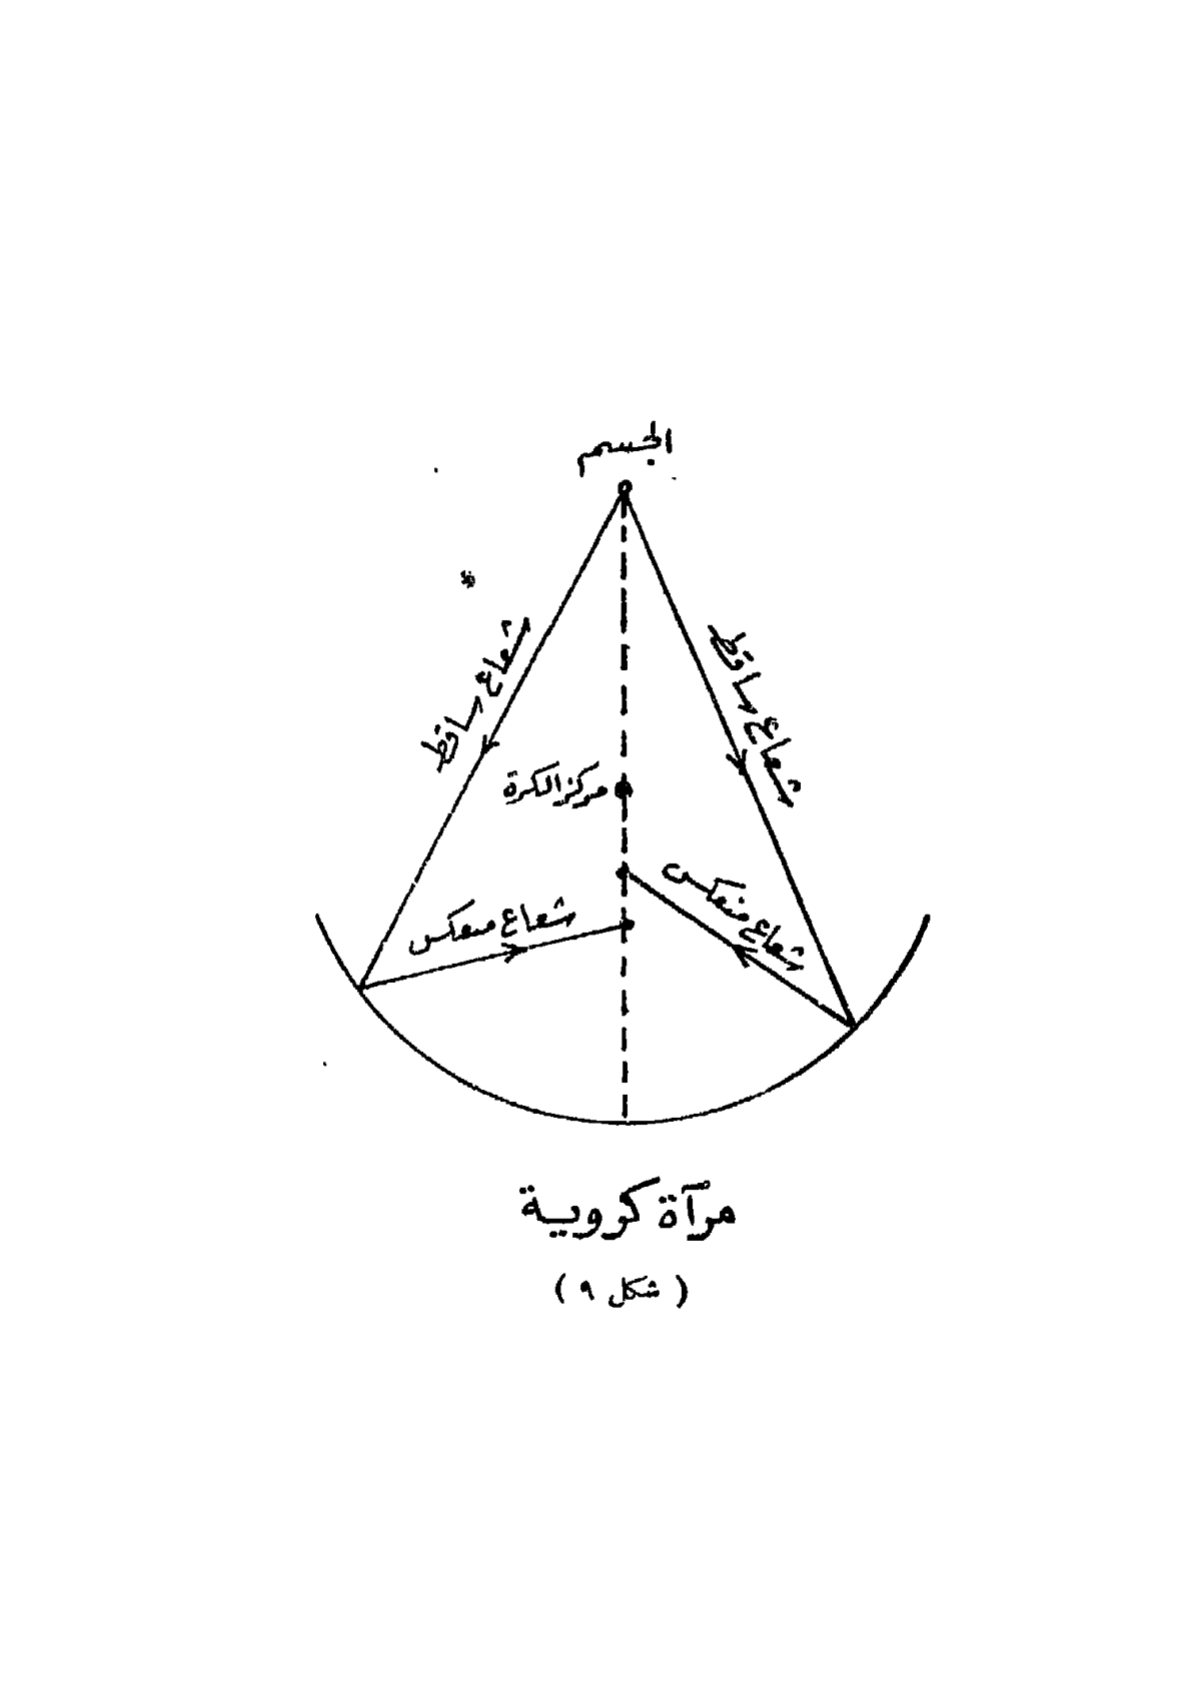 الجسم
شعاع ساقط
شعاع ساقط
مركز الكرة
شعاع منعكس
شعاع منعكس
مرآة كروية
( شكل ٩ )